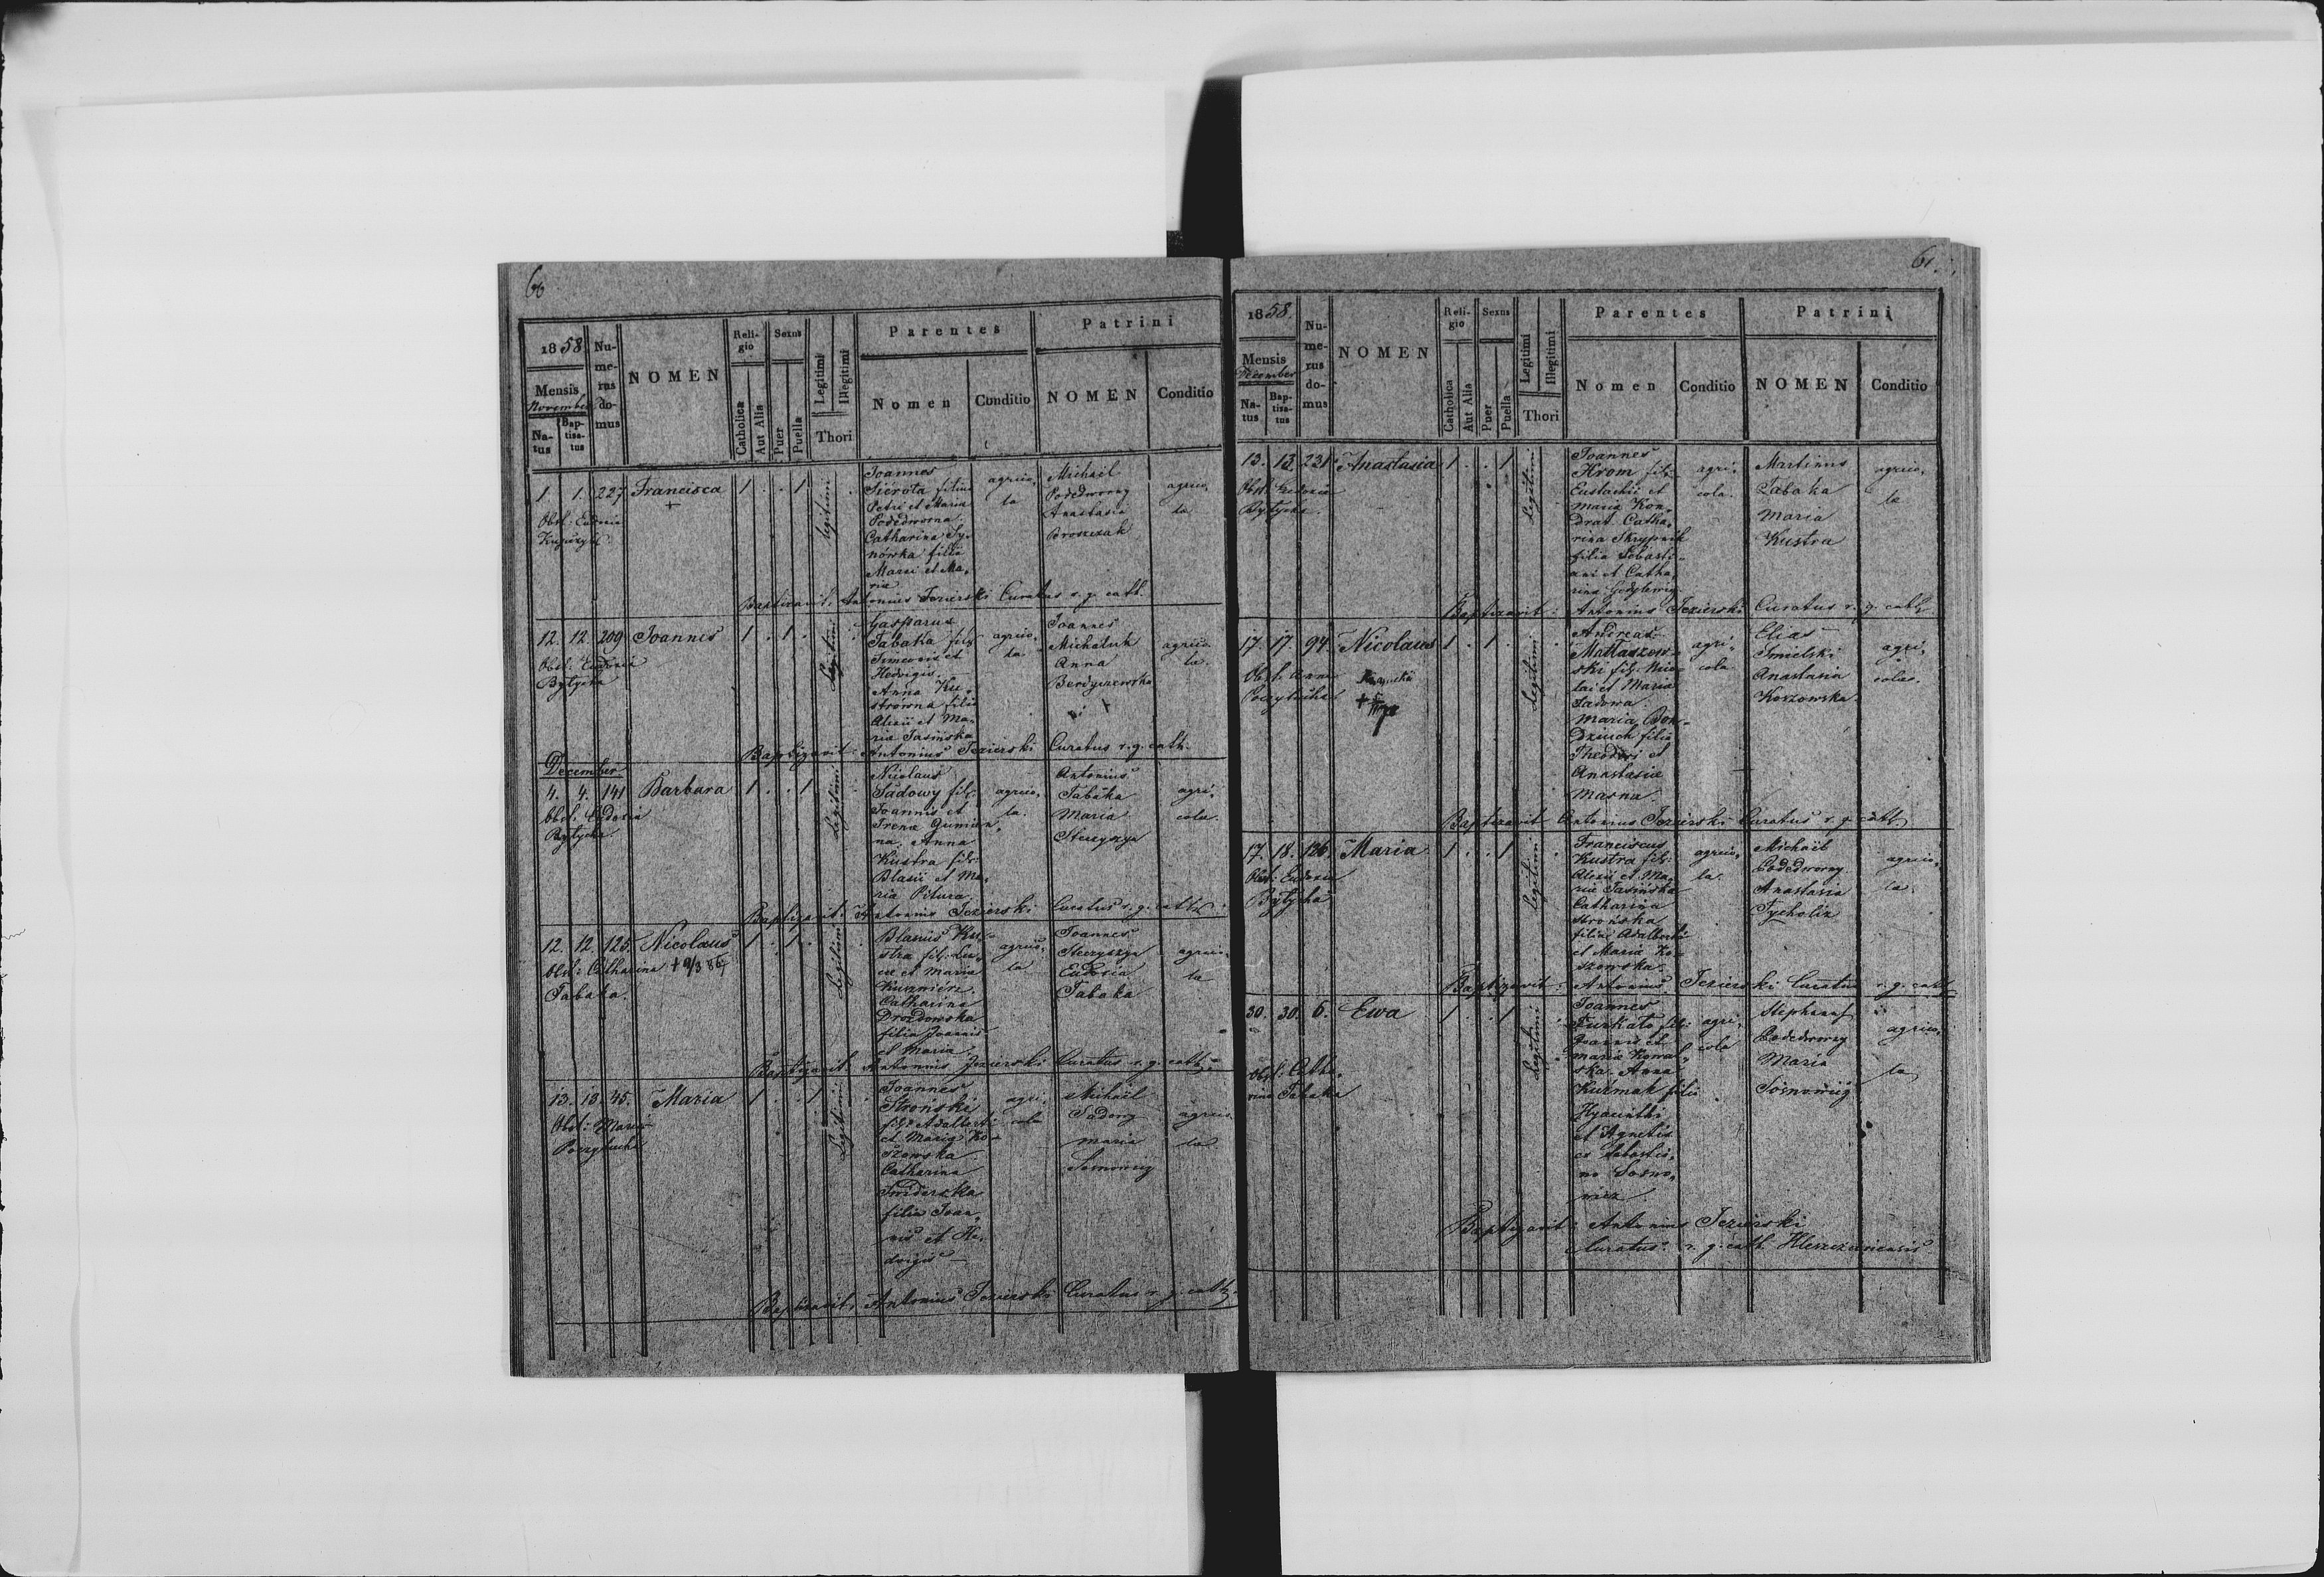 60
1858
Mensis
November
Na-
tus
Bap-
tisa-
tus
Nu-
me-
rus
do-
mus
NOMEN
Reli-
gio
Catholica
Aut Alia
Sexus
Puer
Puella
Legitimi
Illegitimi
Thori
Parentes
Nomen
Conditio
Patrini
NOMEN
Conditio
1. 1. 227 Francisca 1 . . 1 legitimi
Obst: Eudocia
Joannes
Sierota filius
Petri et Maria
Podedworna
Catharina Sy-
nówka filia
Marci et Ma-
ria
agrico-
la
Michael
Podedworny
Anastasia
Broszczak
agrico-
la
Baptizavit: Antonius Jezierski Curatus r. g. cath.
12. 12. 209 Joannes 1 . 1 . Legitimi
Obst: Eudocia
Bytycha
Gasparus
Tabaka fil:
Simeonis et
Hedvigis.
Anna Ku-
strowna filia
Alexii et Ma-
ria Jasińska
agrico-
la
Joannes
Michaluk
Anna
Berdyszewska
agrico-
la.
Baptizavit: Antonius Jezierski Curatus r. g. cath.
December
4. 4. 141 Barbara 1 . . 1 Legitimi
Obst: Eudocia
Bytycha
Nicolaus
Sadowy fil:
Joannis et
Irena Gumien-
na. Anna
Kustra fil:
Blasii et Ma-
ria Pitura
agrico-
la.
Antonius
Tabaka
Maria
Steczyszyn
agri-
cola.
Baptizavit: Antonius Jezierski Curatus r. g. cath.
12. 12. 125. Nicolaus 1 . 1 . Legitimi
Obst: Catharina
Tabaka.
Blasius Ku-
stra fil: Lu-
cae et Maria
Kuzmicz.
Catharina
Drozdowska
filia Joannis
et Maria
agrico-
la
Joannes
Steczyszyn
Eudocia
Tabaka
agrico-
la
Baptizavit: Antonius Jezierski Curatus r. g. cath.
13. 13. 45. Maria 1 . . 1 Legitimi
Obst: Maria
Joannes
Stroński
fil: Adalberti
et Maria Ko-
szowska
Catharina
Smiderska
filia Joan-
nis et He-
dvigis
agri-
cola
Michael
Sadowy
Maria
Sosnowicz
agrico-
la
Baptizavit: Antonius Jezierski Curatus r. g. cath.
61.
1858.
Mensis
December
Na-
tus
Bap-
tisa-
tus
Nu-
me-
rus
do-
mus
NOMEN
Reli-
gio
Catholica
Aut Alia
Sexus
Puer
Puella
Legitimi
Illegitimi
Thori
Parentes
Nomen
Conditio
Patrini
NOMEN
Conditio
13. 13. 231. Anastasia 1 . . 1 Legitimi
Obst. Eudocia
Bytycha.
Joannes
Hrom fil:
Eustachii et
Maria Kon-
drat. Catha-
rina Skrypnik
filia Sebasti-
ani et Catha-
rina
agri-
cola.
Martinus
Tabaka
Maria
Kustra
agrico-
la
Baptizavit: Antonius Jezierski Curatus r. g. cath.
17. 17. 94. Nicolaus 1 . 1 . Legitimi
Obst: Anna
Andreas
Matlaszew-
ski fil: Nico-
lai et Maria
Sadowa.
Maria Bon-
dziuch filia
Theodori et
Anastasia
Masna
agri-
cola
Elias
Smielski
Anastasia
Koszowska
agri-
cola.
Baptizavit Antonius Jezierski Curatus r. g. cath.
17. 18. 126. Maria 1 . . 1 Legitimi
Obst: Eudocia
Bytycha
Franciscus
Kustra fil:
Alexii et Ma-
ria Jasińska
Catharina
Strońska
filia Adalberti
et Maria Ko-
szowska
agrico-
la.
Michael
Podedworny
Anastasia
Tycholiz
agrico-
la.
Baptizavit: Antonius Jezierski Curatus r. g. cath.
30. 30. 6. Ewa 1 . . 1 Legitimi
Obst. Catha-
rina Tabaka
Joannes
Furkało fil:
Joannis et
Maria Kowal-
ska. Anna
Kuźmak filia
Hyacinthi
et Agnetis
agri-
cola
Stephanus
Podedworny
Maria
Sosnowicz
agrico-
la
Baptizavit: Antonius Jezierski
Curatus r. g. cath. Hleszczavensis